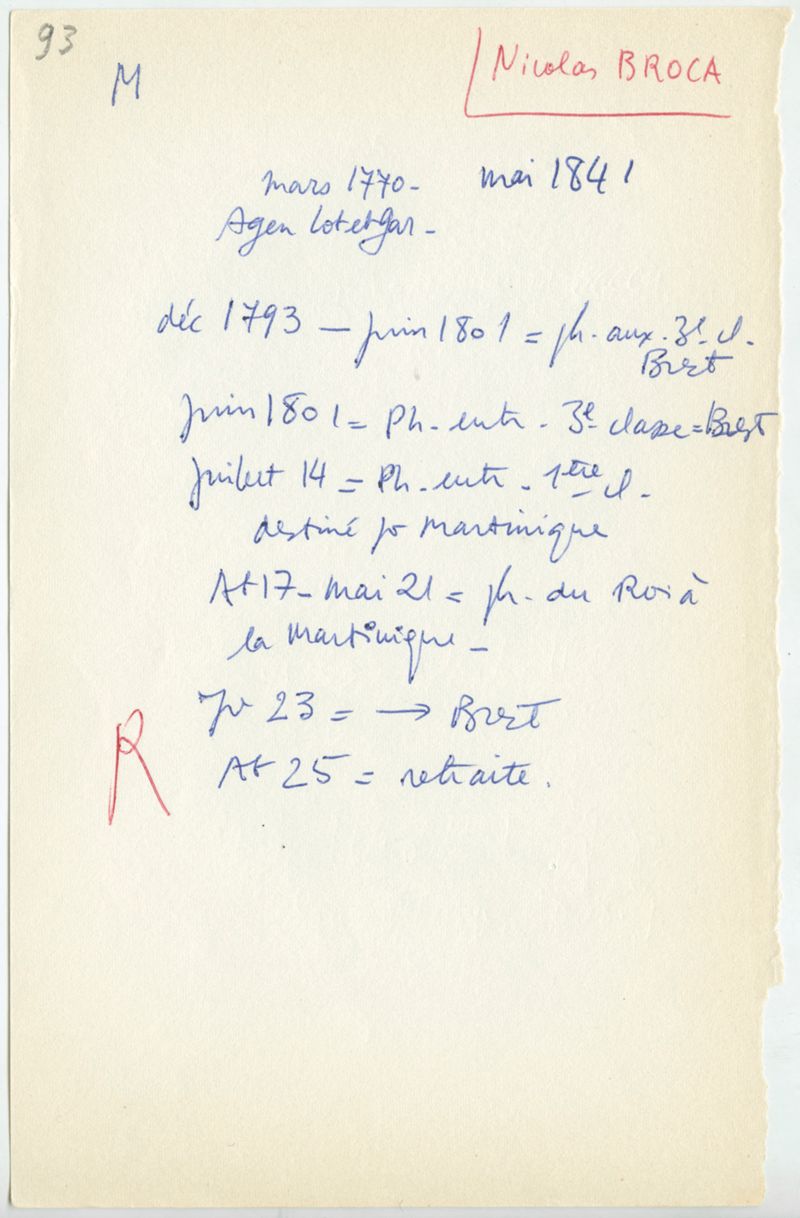 93
M
Nicolas BROCA
mars 1770- mai 1841
Agen Lot et Gar -
déc 1793 — juin 1801 = ph. aux. 3e cl.
Brest
juin 1801 = Ph. entr. 3e classe = Brest
Juillet 14 = Ph. entr. 1ère cl.
destiné pr Martinique
At 17 - mai 21 = ph. du Roi à
la Martinique -
Jr 23 = → Brest
R
At 25 = retraite.